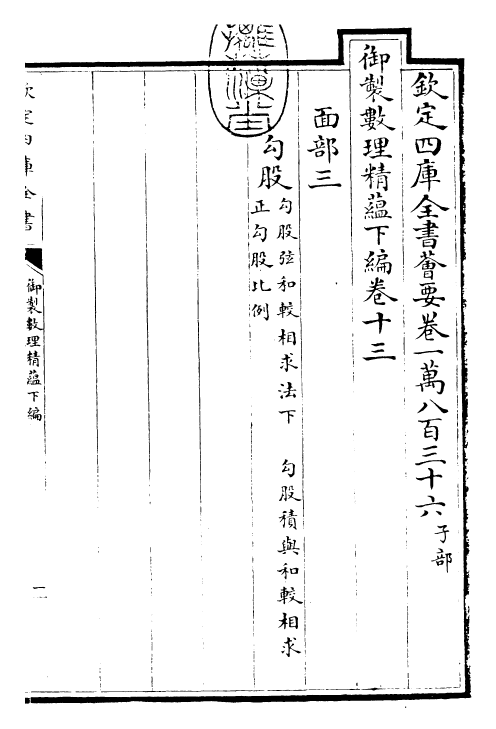 欽定四庫全書薈要卷一萬八百三十六子部
御製數理精蘊下編卷十三
面部三
勾股
勾股弦和較相求法下　勾股積與和較相求
正勾股比例
欽定四庫全書
御製數理精蘊下編
一